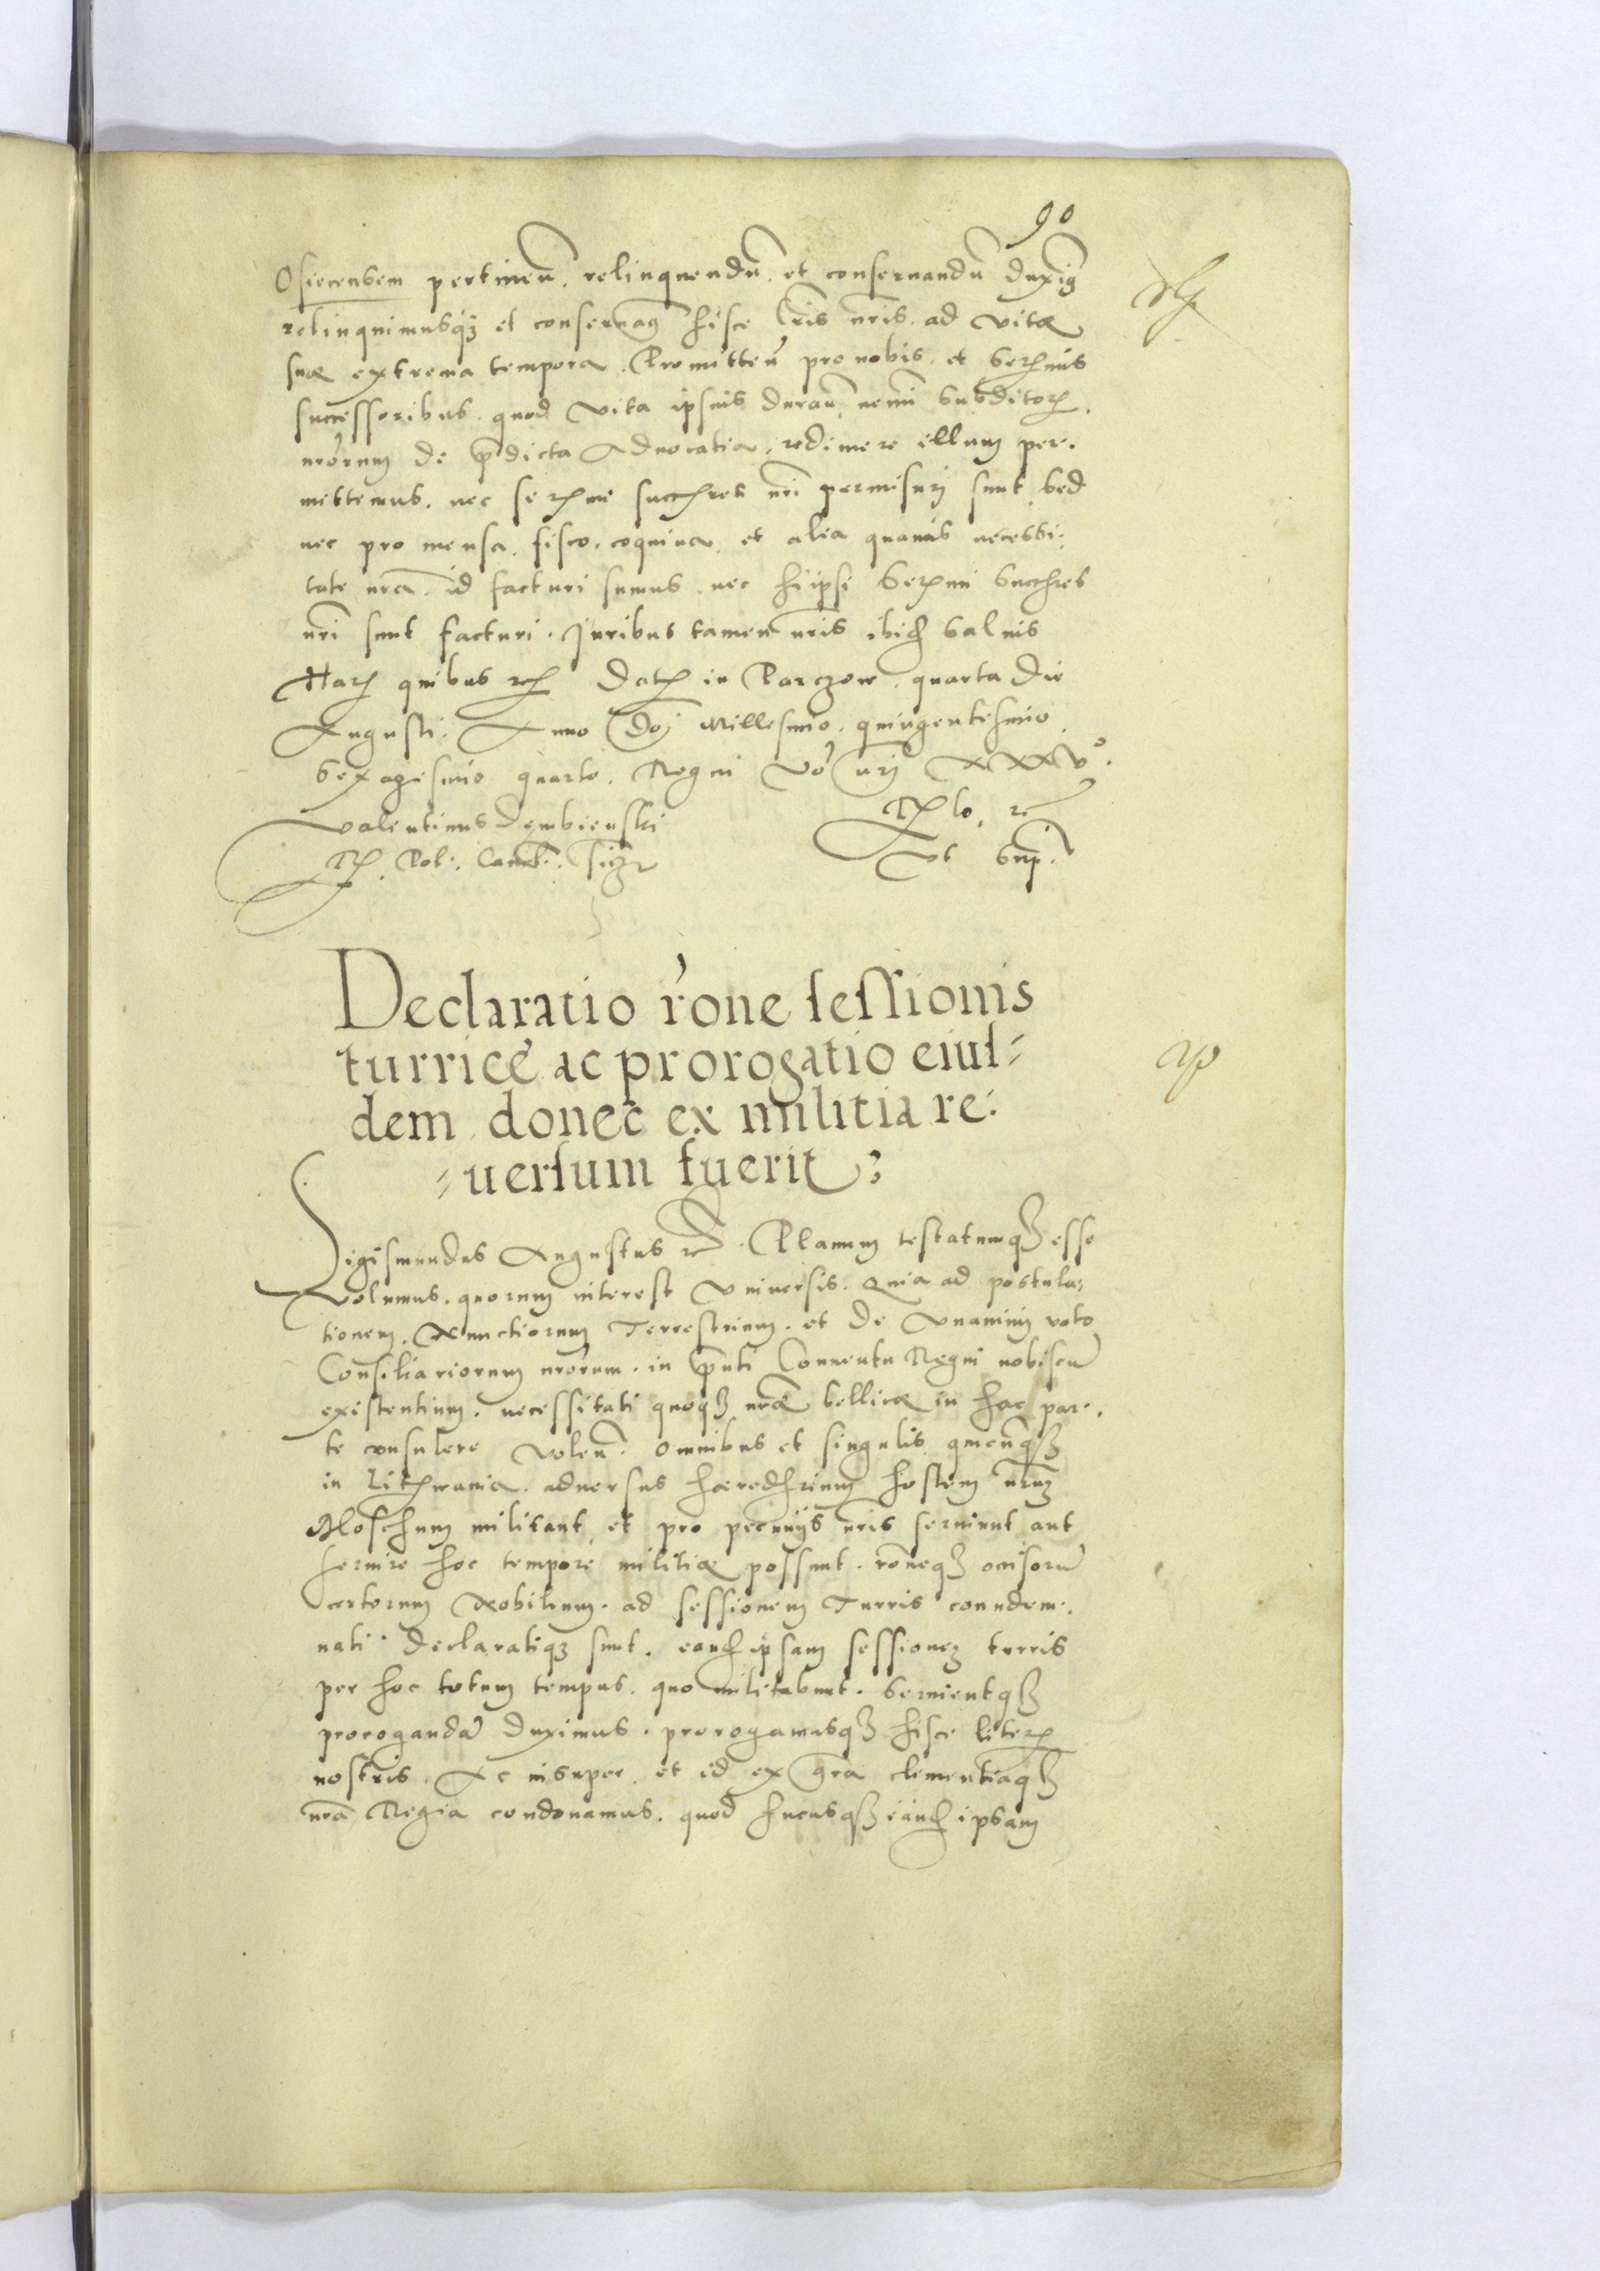 90
Osiecensem pertineñ. relinquendũ. et conseruandũ duxim9
relinquimusq3 et conseruam9 hisce lr̃is nr̃is. ad vitæ
suæ extrema tempora. Promitteñ pro nobis. et Serẽmis
successoribus. quod vita ipsius durañ. nemini Subditor̃.
nrõrum de p̃dicta Aduocatia, redimere illum per-
mittemus. nec serẽmi succr̃es nr̃i permisurj sunt, Sed
nec pro mensa, fisco, coquina, et alia quauis necessi-
tate nr̃a. id facturi sumus. nec hi ipsi Serẽmi Succr̃es
nr̃i sunt facturi. Juribus tamen nr̃is ibid̃ Saluis
Har̃ quibus r̃ Dat̃ in Parczow. quarta die
Augusti. Anno Dñj Millesimo. quingentesimo.
Sexagesimo quarto. Regni võ nrj XXXVᵒ.
Valentinus Dembienski
R̃. Pol. Canc̃.
Vt Sup̃.
Declaratio r̃one sessionis
turricę ac prorogatio eius-
dem donec ex militia re-
-uersum fuerit
Sigismundus Augustus r̃. Planum testatumq3 esse
Volumus. quorum interest Vniuersis. Quia ad postula-
tionem. Nunctiorum Terrestrium. et de Vnanimi voto
Consiliariorum nrõrum. in p̃nti Conuentu Regni nobiscũ
existentium. necessitati quoq3 nr̃æ bellicæ in hac par-
te consulere voleñ. omnibus et singulis quicunq3
in Lithwania. aduersus hæreditarium hostem nr̃um
Moschum militant et pro pecunijs nr̃is seruiunt aut
seruire hoc tempore militiæ possunt. rõneq3 occisorũ
certorum Nobilium. ad sessionem Turris condem-
nati declaratiq3 sunt. eand̃ ipsam sessionem turris
per hoc totum tempus. quo militabunt. Seruientq3
prorogandã duximus. prorogamusq3 hisce liter̃
nostris. Ac insuper et id ex gr̃a clementiaq3
nr̃a Regia condonamus. quod hucusq3 eand̃ ipsam